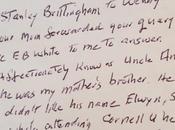 Stanley Brittingham to Wendy
your Mom forwarded your query
re EB White to me to answer.
affectionately known as Uncle An
he was my mother's brother. He
didn't like his name Elwyn, s
while attending Cornell U he